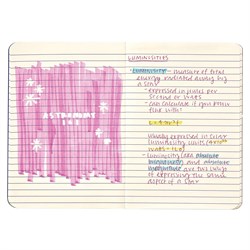 ASTRONOMY
LUMINOSITIES
- Luminosity - measure of total
energy radiated during by
a star
- expressed in joules per
second or watts
- can calculate it you know
flux with
usually expressed in solar
luminosity units
watts = L☉
- Luminosity (aka absolute
brightness) and absolute
magnitude are two ways
of expressing the same
aspect of a star